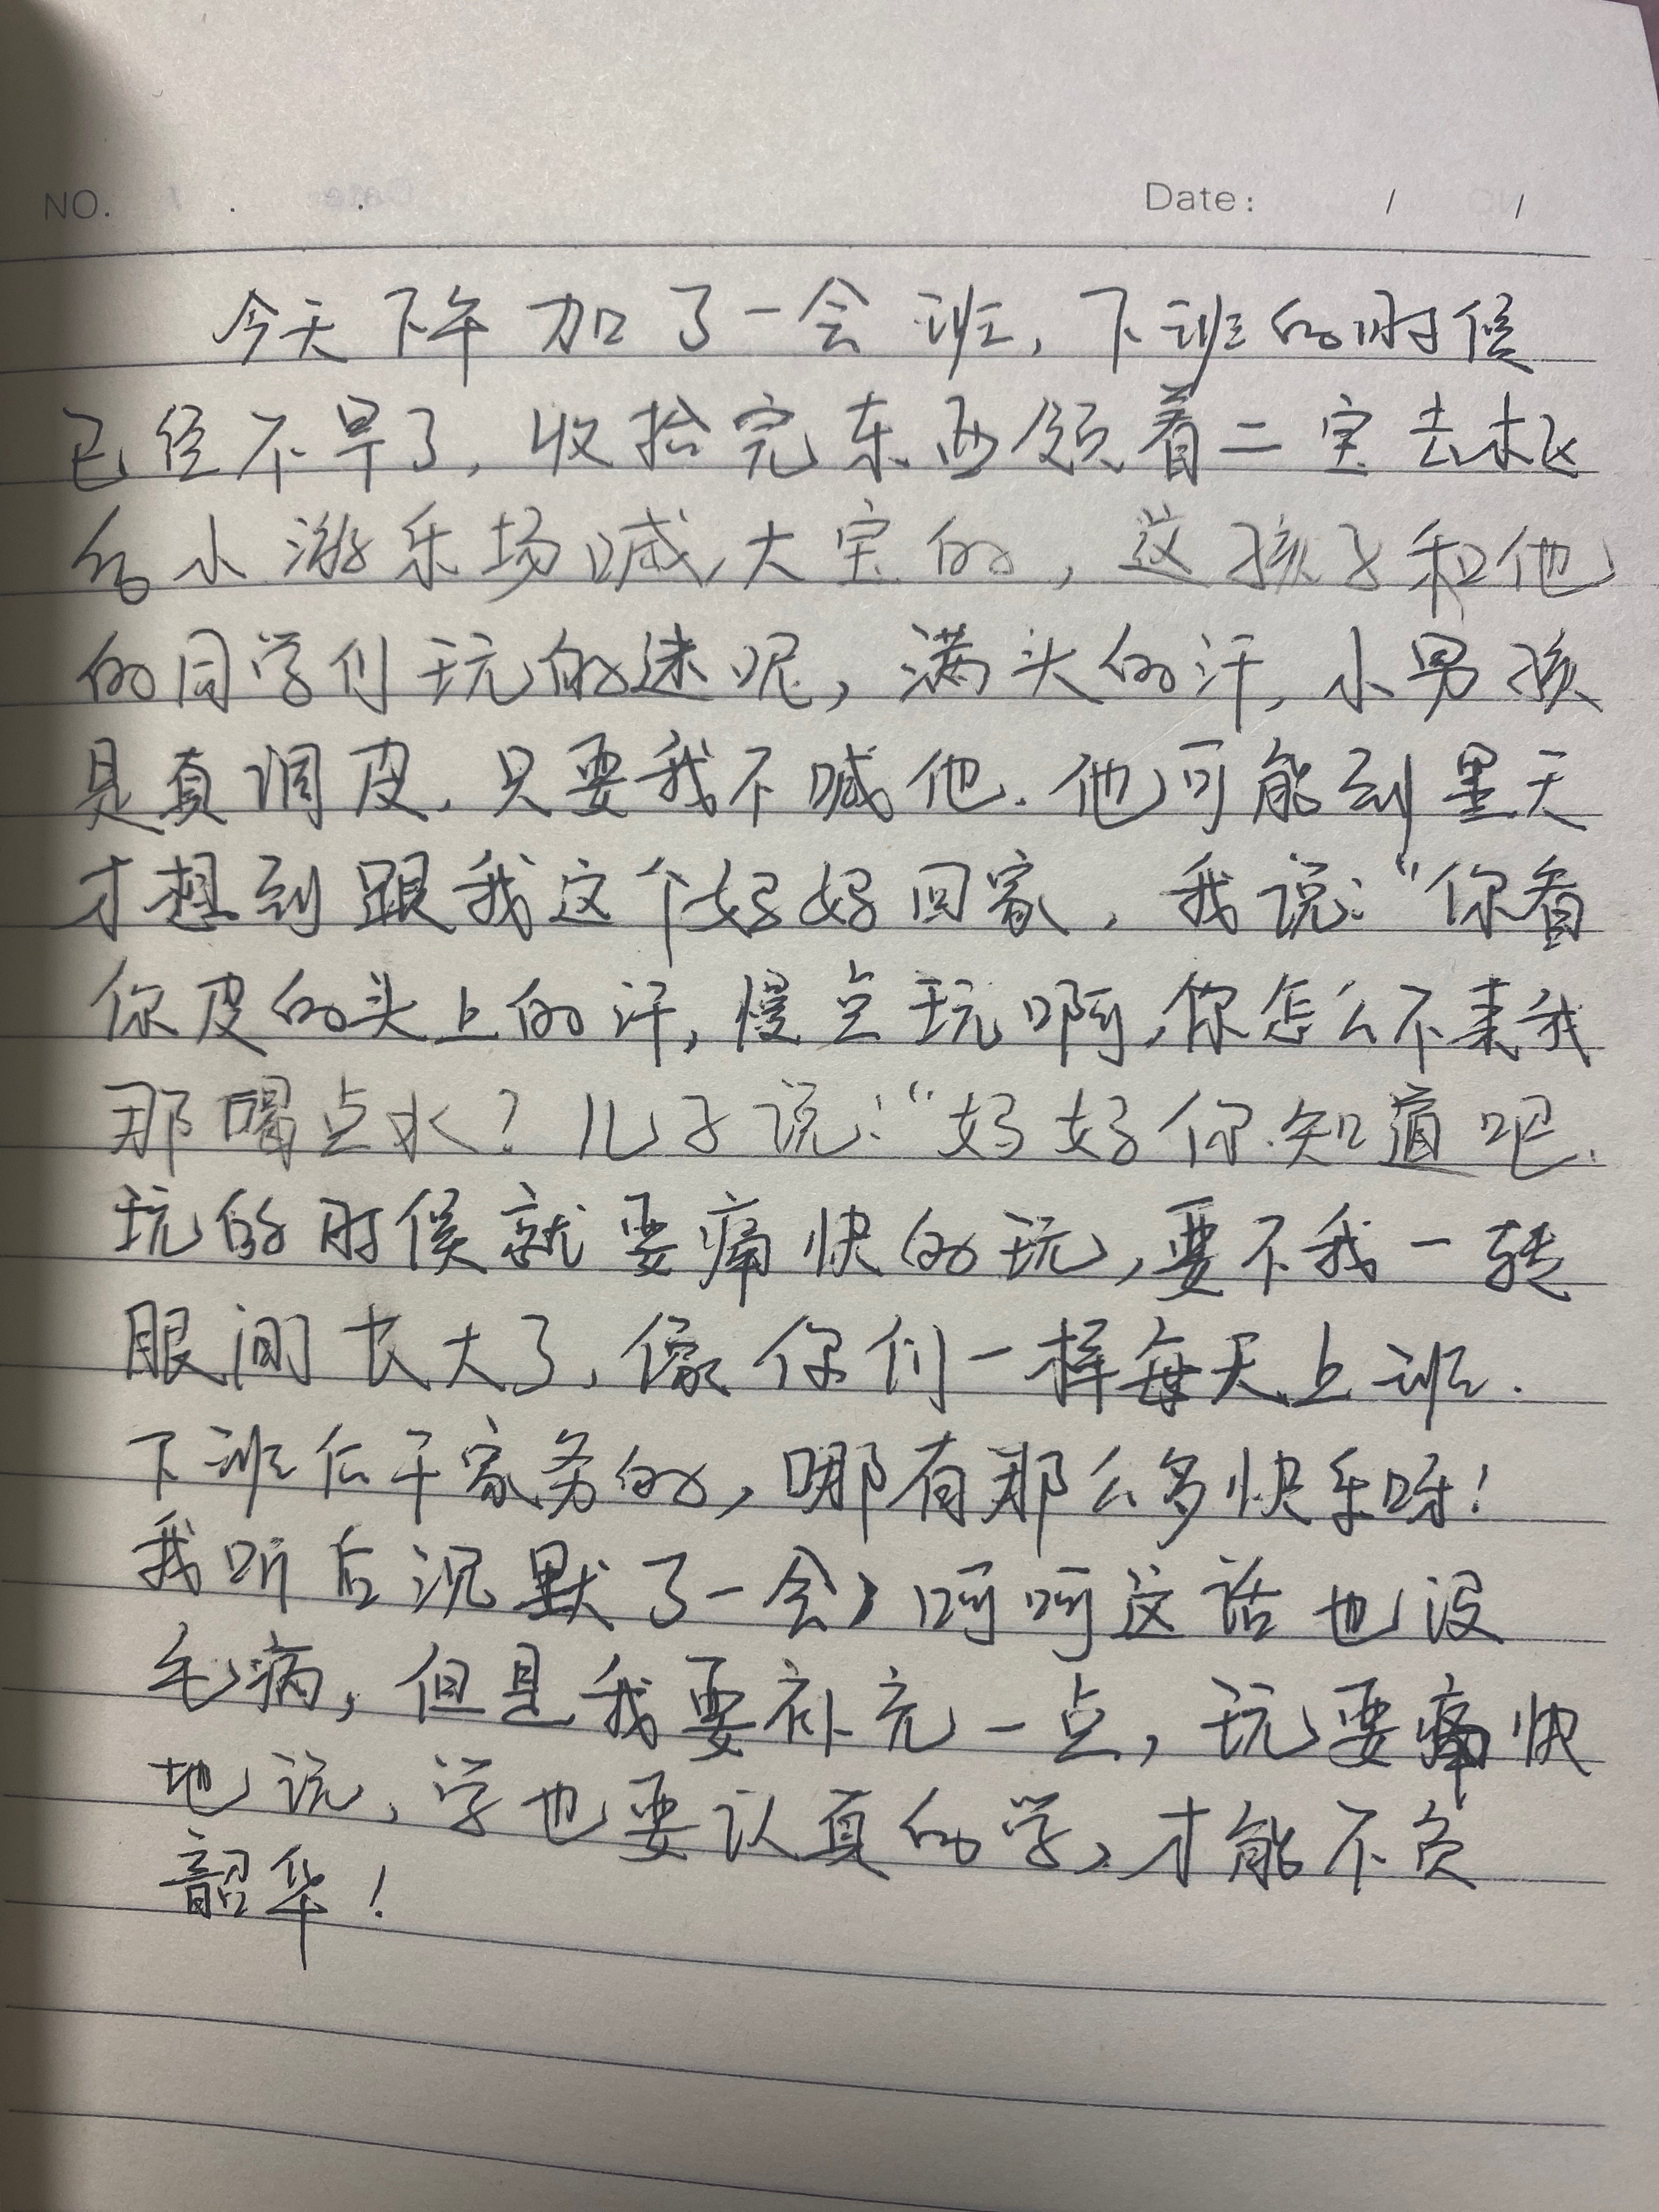 NO. Date: / /
今天下午加了一会班，下班的时候
已经不早了，收拾完东西领着二宝去校
的小游乐场喊大宝的，这孩子和他
的同学们玩的迷呢，满头的汗，小男孩
是真调皮，只要我不喊他．他可能到黑天
才想到跟我这个妈妈回家，我说："你看
你皮的头上的汗，慢点玩啊，你怎么不来我
那喝点水？儿子说："妈妈你知道吧．
玩的时候就要痛快的玩，要不我一转
眼间长大了，像你们一样每天上班．
下班后干家务的，哪有那么多快乐呀！
我听后沉默了一会，呵呵这话也没
毛病，但是我要补充一点，玩要痛快
地说，学也要认真的学，才能不负
韶华！